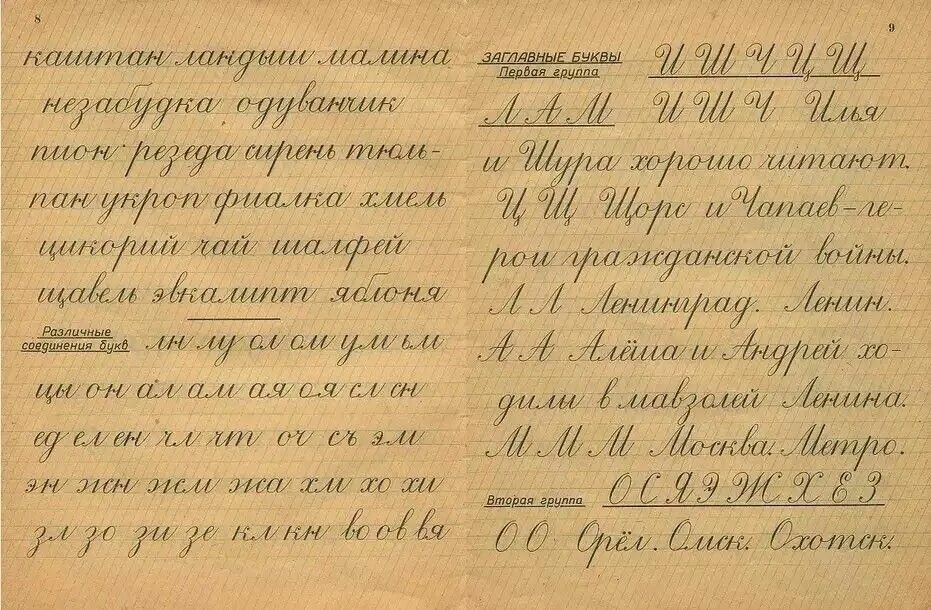 8
каштан ландыш малина
незабудка одуванчик
пион резеда сирень тюль-
пан укроп фиалка хмель
цикорий чай шалфей
щавель эвкалипт яблоня
Различные
соединения букв лн лу ол ом ум ьм
цы он ал ам ая оя сл сн
ед ел ен чл чт оч съ эм
эн жн жм жа хм хо хи
зл зо зи зе кл кн во ов вя
9
ЗАГЛАВНЫЕ БУКВЫ
Первая группа И Ш Ч Ц Щ
Л А М И Ш Ч Илья
и Шура хорошо читают.
Ц Щ Щорс и Чапаев – ге-
рои гражданской войны.
Л Л Ленинград. Ленин.
А А Алёша и Андрей хо-
дили в мавзолей Ленина.
М М М Москва. Метро.
Вторая группа О С Я Э Ж Х Е З
О О Орёл. Омск. Охотск.